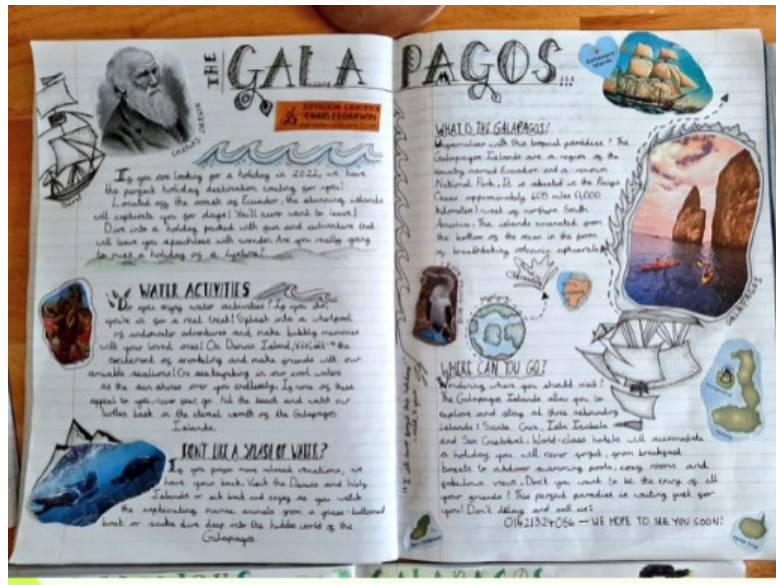 THE GALAPAGOS...
CHARLES DARWIN
ESTACION CIENTIFICA
CHARLES DARWIN
If you are looking for a holiday in 2022, we have
the perfect holiday destination waiting for you!
Located off the coast of Ecuador, the stunning islands
will captivate you for days! You'll never want to leave!
Dive into a holiday packed with fun and adventure that
will leave you speechless with wonder. Are you really going
to miss a holiday of a lifetime?
WATER ACTIVITIES
Do you enjoy water activities? If you do,
you're in for a real treat! Splash into a whirlpool
of underwater adventures and make bubbly memories
with your loved ones! On Darwin Island, the
excitement of snorkeling and make friends with our
amiable sealions! Go seakayaking in our cool waters
as the sun shines over you endlessly. If none of these
appeal to you, never fear, go hit the beach and watch our
turtles bask in the eternal warmth of the Galapagos
Islands.
DON'T LIKE A SPLASH OF WATER?
If you prefer more relaxed vacations, we
have your back. Visit the Darwin and Wolf
Islands or sit back and enjoy as you watch
the captivating marine animals from a glass-bottomed
boat or scuba dive deep into the hidden world of the
Galapagos.
Galapagos
Islands
WHAT IS THE GALAPAGOS?
Unfamiliar with this tropical paradise? The
Galapagos Islands are a region of the
country named Ecuador and a renown
National Park. It is situated in the Pacific
Ocean approximately 605 miles (1,000
kilometers) west of northern South
America. The islands emanated from
the bottom of the ocean in the form
of breathtaking volcanic upheavals
GALAPAGOS
WHERE CAN YOU GO?
Wondering where you should visit?
The Galapagos Islands allow you to
explore and stay at three astounding
islands: Santa Cruz, Isla Isabela
and San Cristobal. World-class hotels will accomodate
a holiday you will never forget, from breakfast
buffets to outdoor swimming pools, cosy rooms and
fabulous views. Don't you want to be the envy of all
your friends? This perfect paradise is waiting just for
you! Don't delay and call us:
01621324056 - WE HOPE TO SEE YOU SOON!